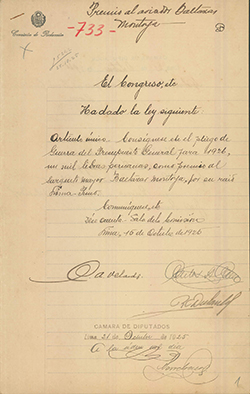 Premio al aviador Baltazar
Montoya
- 733 -
Comisión de Redacción
El Congreso, etc
Ha dado la ley siguiente:
Artículo único. Consígnese en el pliego de
Guerra del Presupuesto General para 1926,
un mil libras peruanas, como premio al
sargento mayor Baltazar Montoya, por su raid
Lima
Comuníquese, etc
Dese cuenta. Sala de la Comisión
Lima, 15 de Octubre de 1925
CAMARA DE DIPUTADOS
Lima, 21 de Octubre de 1925
A la orden del día
1